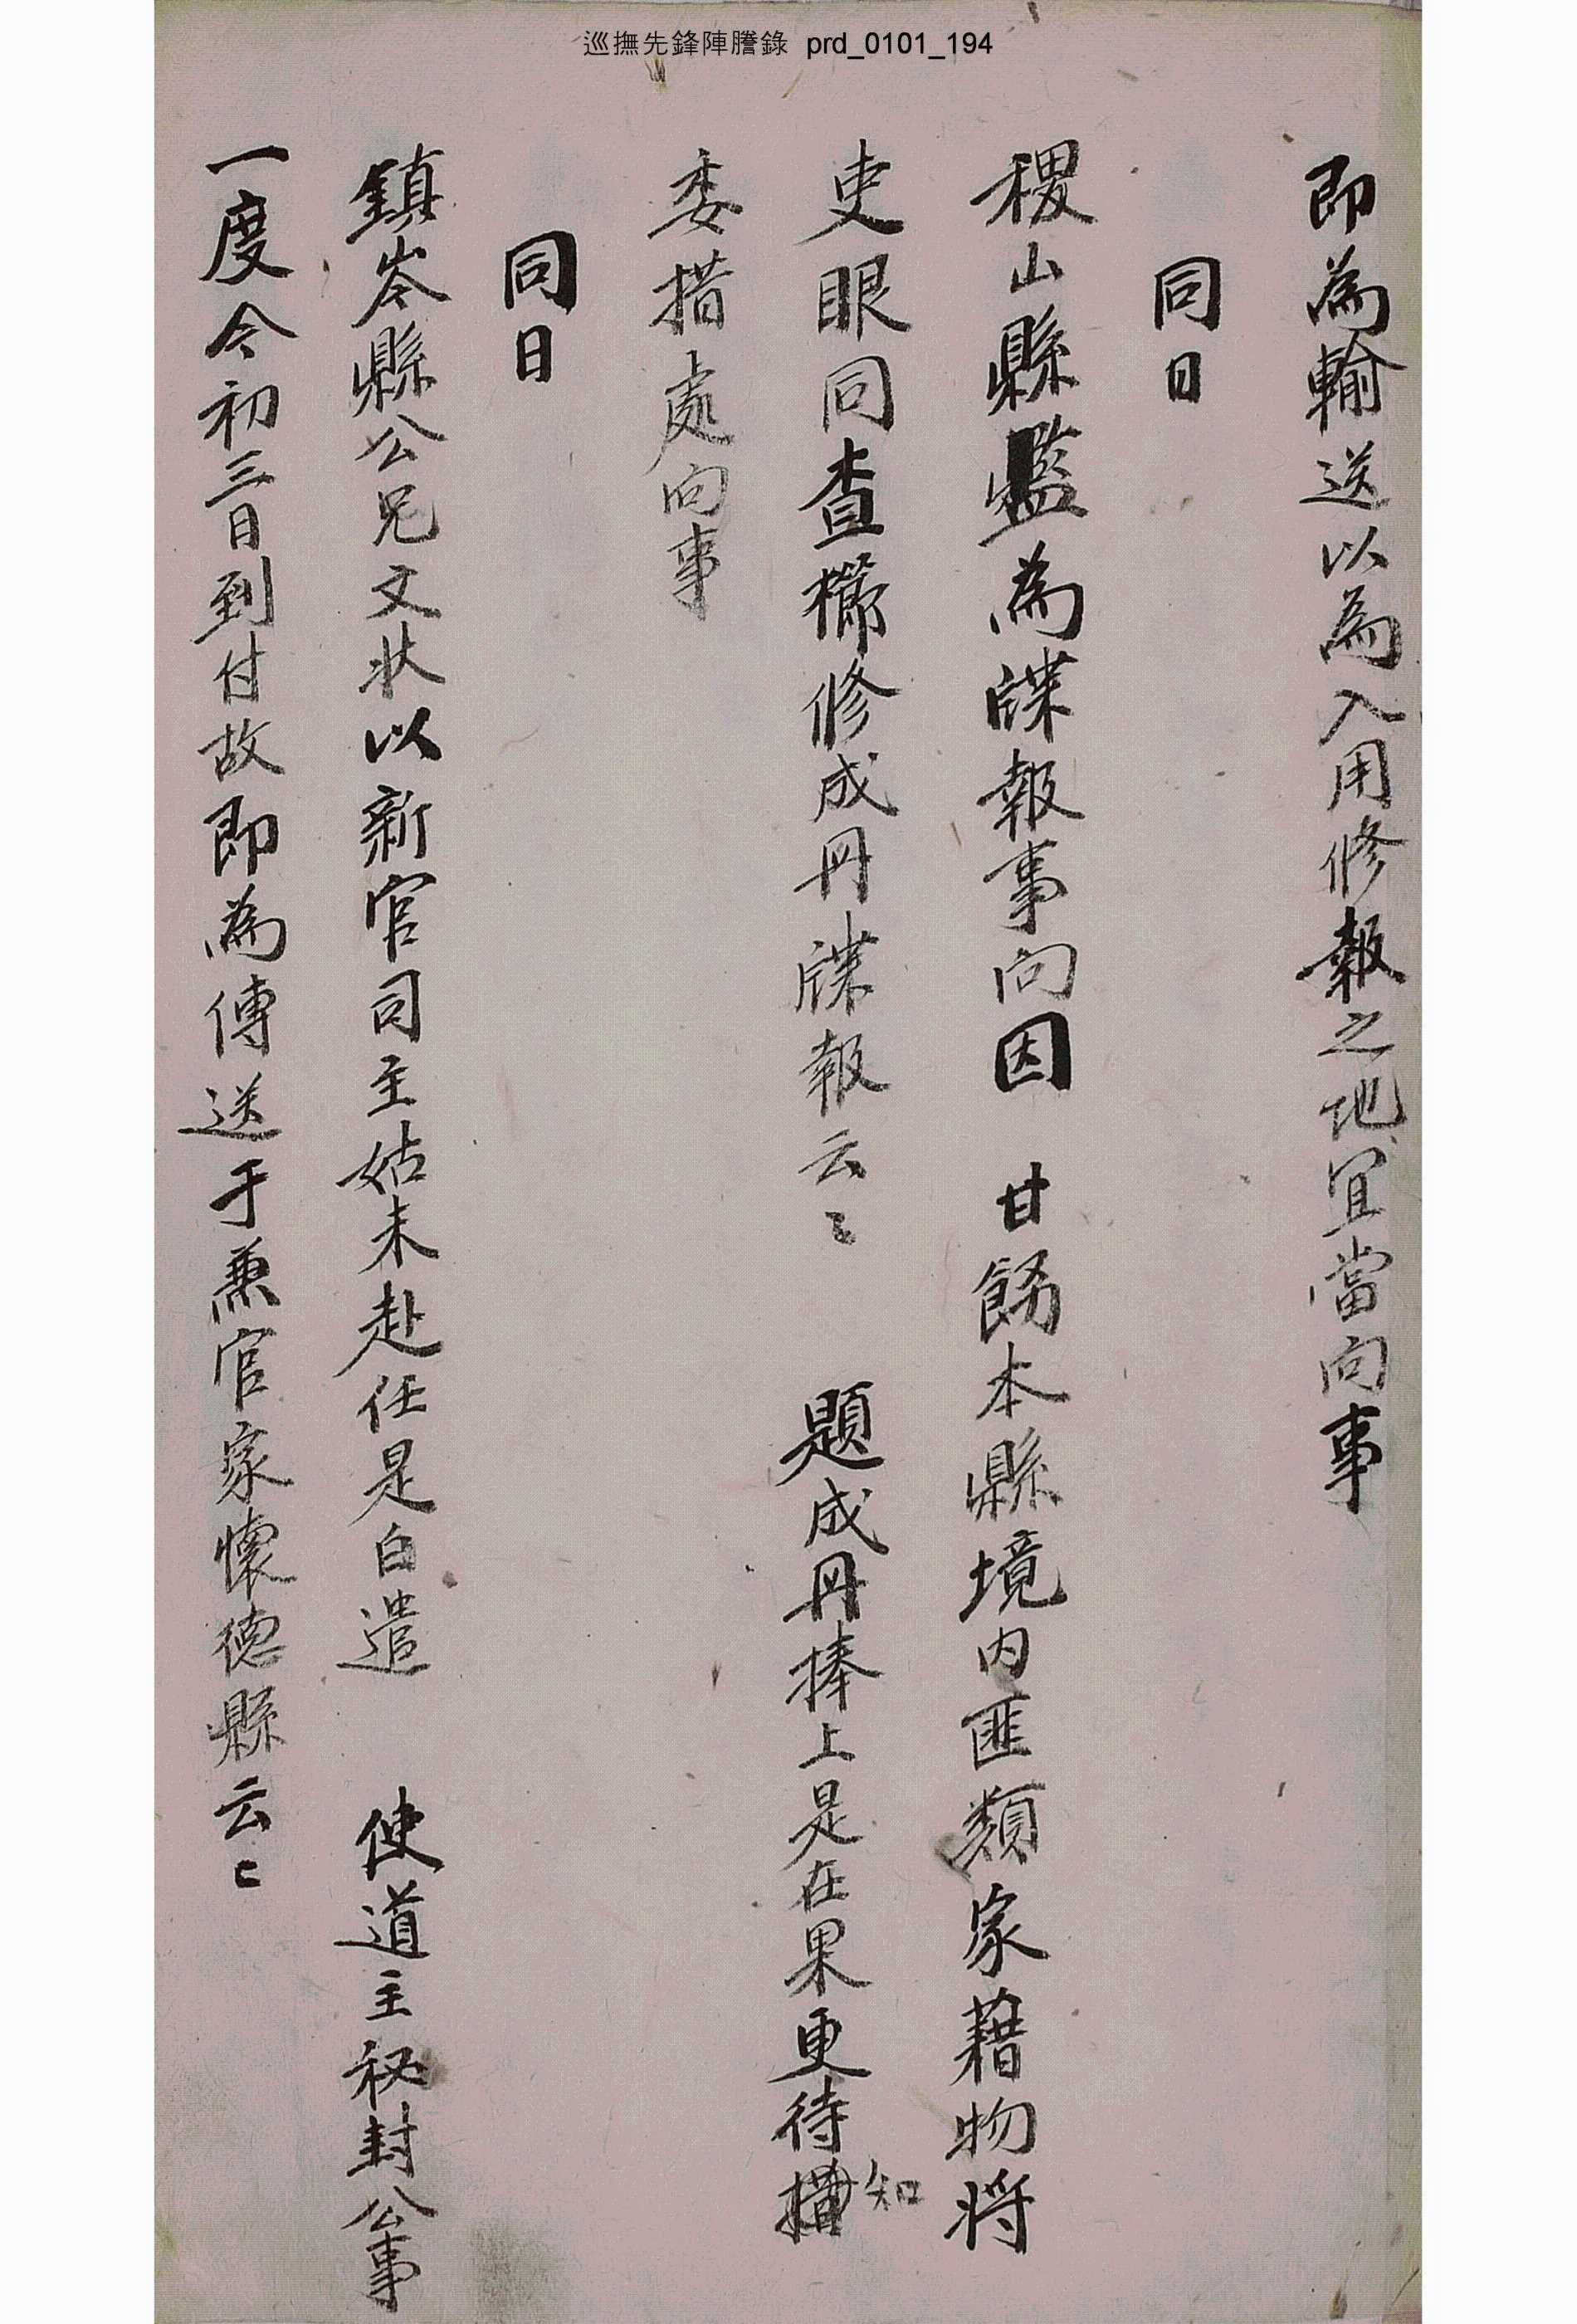 巡撫先鋒陣謄錄 prd_0101_194
即為輸送以為入用修報之地宜當向事
同日
稷山縣監為牒報事向因 甘飭本縣境內匪類家藉物將
吏眼同查櫛修成冊牒報云〻 題成冊捧上是在果更待措知
委措處向事
同日
鎮岑縣公兄文狀以新官司主姑未赴任是白遣 使道主祕封公事
一度今初三日到付故即為傳送于兼官家懷德縣云〻